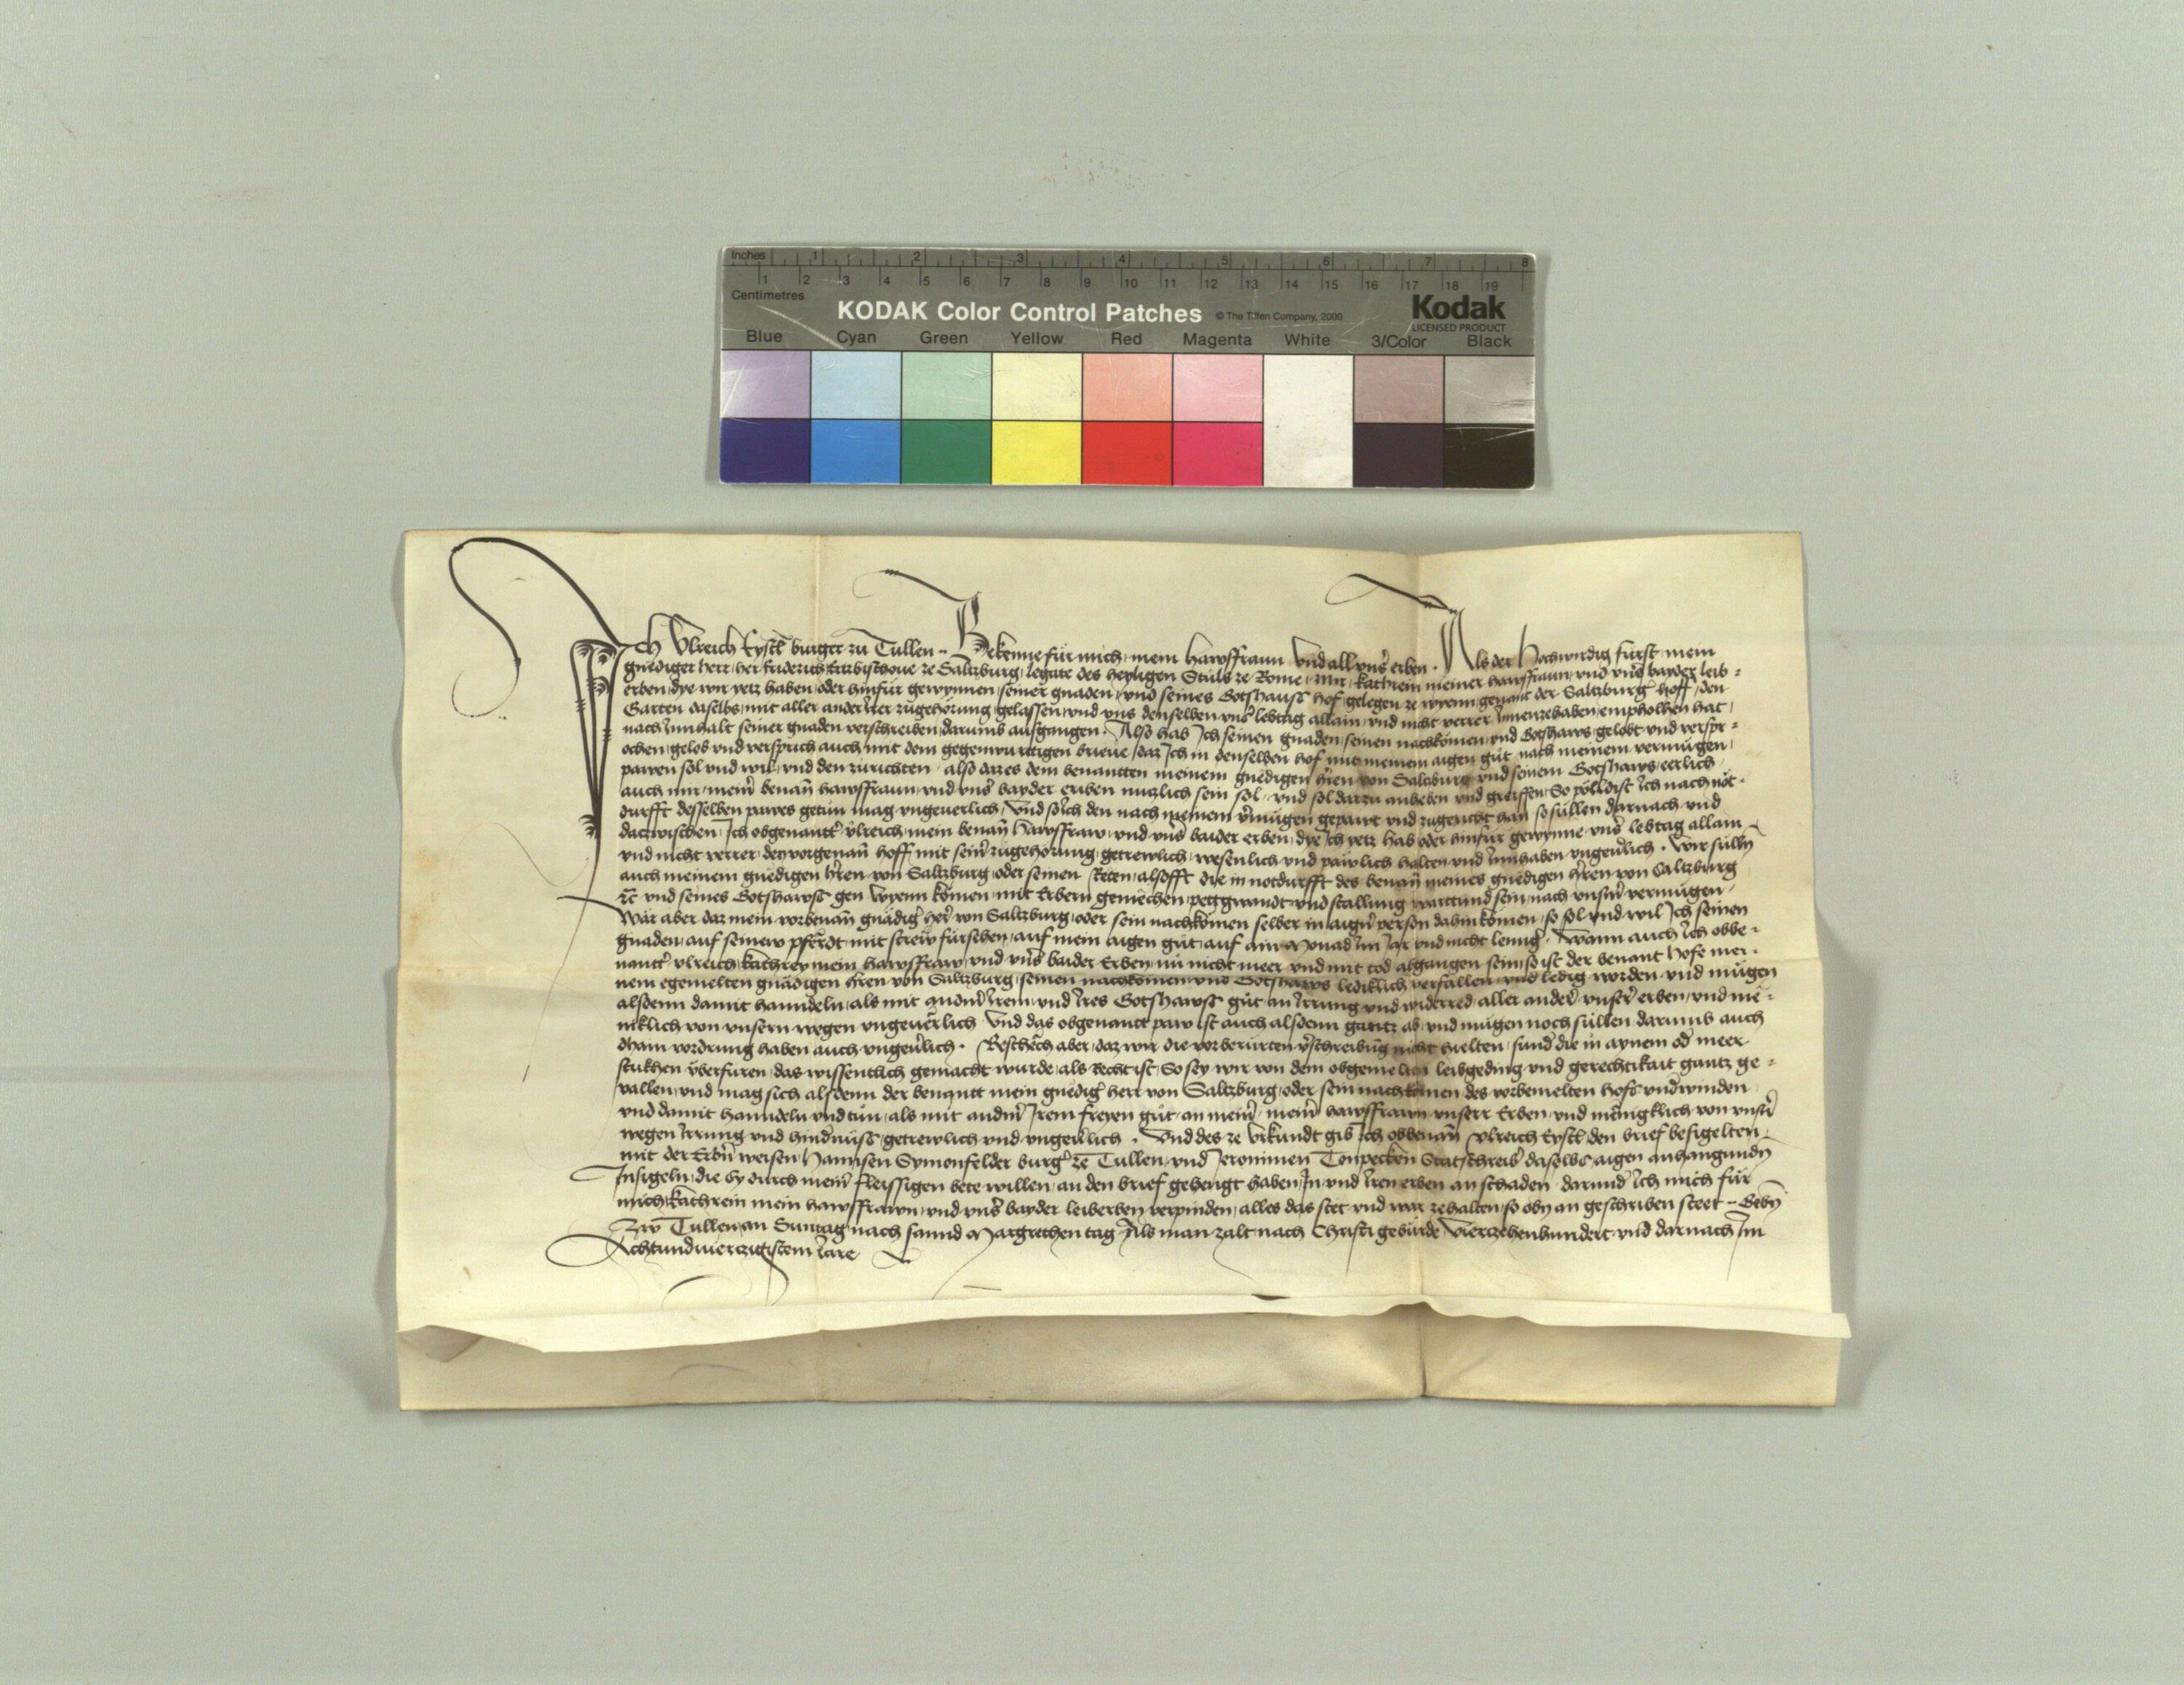 Inches 1 2 3 4 5 6 7 8
1 2 3 4 5 6 7 8 9 10 11 12 13 14 15 16 17 18 19
Centimetres
KODAK Color Control Patches © The Tiffen Company, 2000 Kodak
LICENSED PRODUCT
Blue Cyan Green Yellow Red Magenta White 3/Color Black
Ich Ulreich burger zu Tullen Bekenne für mich mein hawsffraun und all uns̄ erben. Als der Hochwirdig fürst mein
gnediger herr her Friderich Ertzbischoue ze Saltzburg legate des heyligen Stuls ze Rome mir kathrein meiner hawsffraun und uns̄ bayder leib-
erben dye wir yetz haben oder hinfür gewynnen seiner gnaden und seines Gotshauss hof gelegen ze wyenn genant der Saltzburḡ hoff den
Garten daselbs mit aller anderer zugehorung gelassen und uns denselben uns̄ lebtag allain und nicht verrer Innenzehaben empholhen hat
nach Innhalt seiner gnaden verschreiben darumb ausgangen. Also hab Ich seinen gnaden seinen nachkomen und Gotshaws gelobt und verspr-
ochen gelob und versprich auch mit dem gegenwurttigen brieue daz Ich in denselben hof mit meinem aigen gut nach meinem vermugen
pawen sol und wil und den zurichten also daz es dem benantten meinem gnedigen hren von Saltzburg und seinem Gotshaws eerlich
auch mir mein̄ benan̄ hawsffraun und uns̄ bayder erben nuczlich sein sol und sol darzu anheben und greiffen So pelldist Ich nach not-
durfft desselben pawes getun mag ungeuerlich Und so Ich den nach meinem v̄mugen gepawt und zugericht han so sullen darnach und
dazwischen Ich obgenantt̄ Ulreich mein benan̄ hawsffraw und uns̄ baider erben dye Ich yetz hab oder hinfür gewynne uns̄ lebtag allain
und nicht verrer den vorgenan̄ hoff mit sein̄ zugehorung getrewlich wesenlich und pawlich halten und Innhaben ungeu̇lich. Wir sulln̄
auch meinem gnedigen hren von Saltzburg oder seinen Reten alsofft die in notdurfft des benan̄ meines gnedigen hren von Saltzburg
und seines Gotshawss gen wyenn komen mit Erbern gemechen pettgwandt und stallung warttund sein nach unsm̄ vermugen
Wär aber daz mein vorbenan̄ gnädiḡ her̄ von Saltzburg oder sein nachkomen selber in aign̄ person dahin komen so sol und wil Ich seinen
gnaden auf seinew pferdt mit strew fürsehen auf mein aigen gut auf ain Monad Im Jar und nicht lennḡ. Wann auch Ich obbe-
nantt̄ Ulreich kathrey mein hawsffraw und uns̄ baider Erben nu nicht meer und mit tod abgangen sein so ist der benant Hofe mei-
nem egemelten gnädigen hren von Saltzburg seinen nachkomen und Gotshaws lediklich verfallen und ledig worden und mugen
alsdenn damit hanndeln als mit andm̄ Irem und Ires Gotshawss gut an Irrung und widerred aller ander̄ unser̄ erben und me-
niklich von unsern wegen ungeuerlich Und das obgenant paw ist auch alsdenn gantz ab und mugen noch sullen darumb auch
dhain vordrung haben auch ungeu̇lich. Beschech aber daz wir die vorberurten v̄schreibūg nicht hielten sund̄ die in aynem od̄ meer
stukhen uberfuren das wissentlich gemacht wurde als Recht ist So sey wir von dem obgemelten leibgeding und gerechtikait gantz ge-
vallen und mag sich alsdenn der benantt mein gnediḡ herr von Saltzburg oder sein nachkomen des vorbemelten Hofs und̄winden
und damit hanndeln und tun als mit andm̄ Irem freyen gut an mein̄ mein̄ hawsffrawn unserr Erben und menigklich von unsn̄
wegen Irrung und hindnuss getrewlich und ungeu̇lich. Und des ze Urkundt gib Ich obbenan̄ Ulreich den brief besigelten
mit der Erbn̄ weisen Hannsen Symonfelder burḡ ze Tullen und Jeronimen Statschreib̄ daselbs aigen anhangundn̄
Insigeln die Sy durch mein̄ fleissigen bete willen an den brief gehengt haben In und Iren erben an schaden darund̄ Ich mich für
mich kathrein mein hawsffrawn und uns̄ bayder leiberben verpinden alles das stet und war zehalten so obn̄ an geschriben steet Gebn̄
Zw Tullen an Suntag nach sannd Margrethen tag Als man zalt nach Christi geburde Vierzehenhundert und darnach Im
Achtundvierzigistem Jare